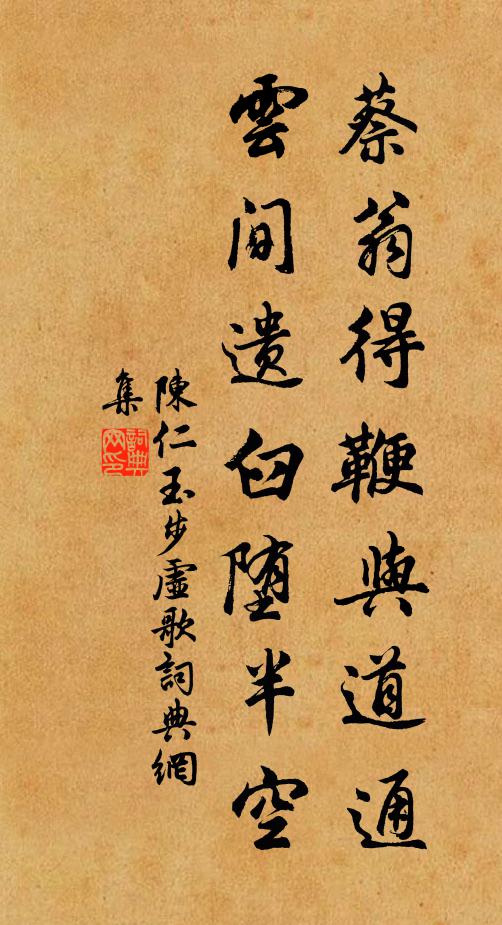 蔡翁得鞭與道通
雲間遗臼堕半空
陳仁玉步虛歌詞典網
集
詞典
网印